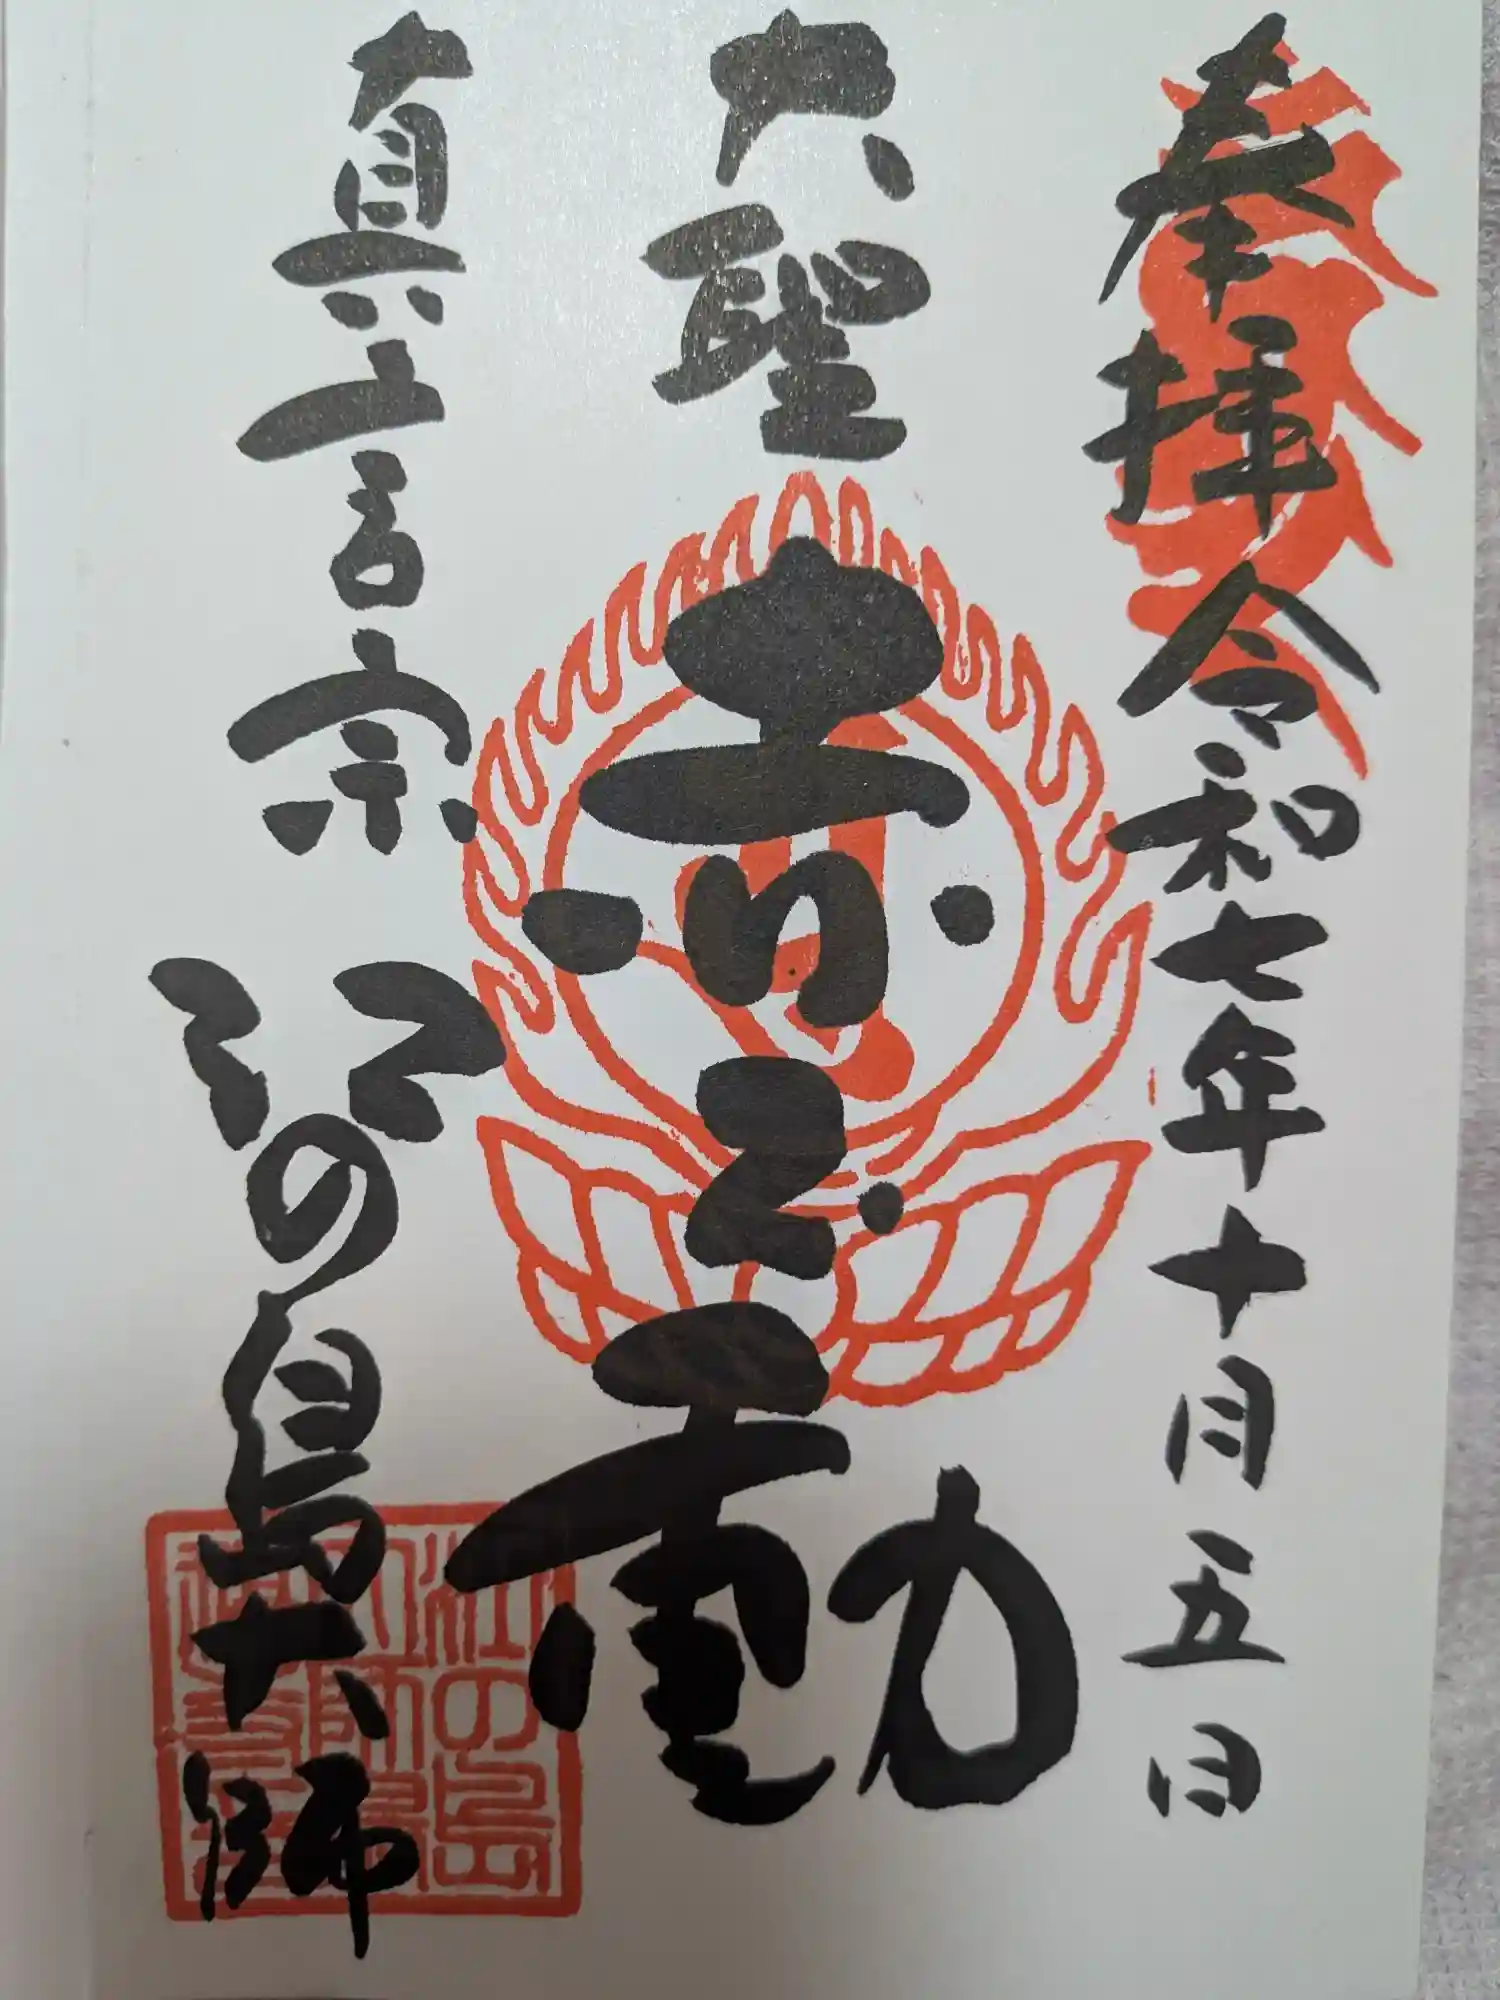 奉拝 令和七年十月五日
大聖 赤不動
真言宗 江の島大師